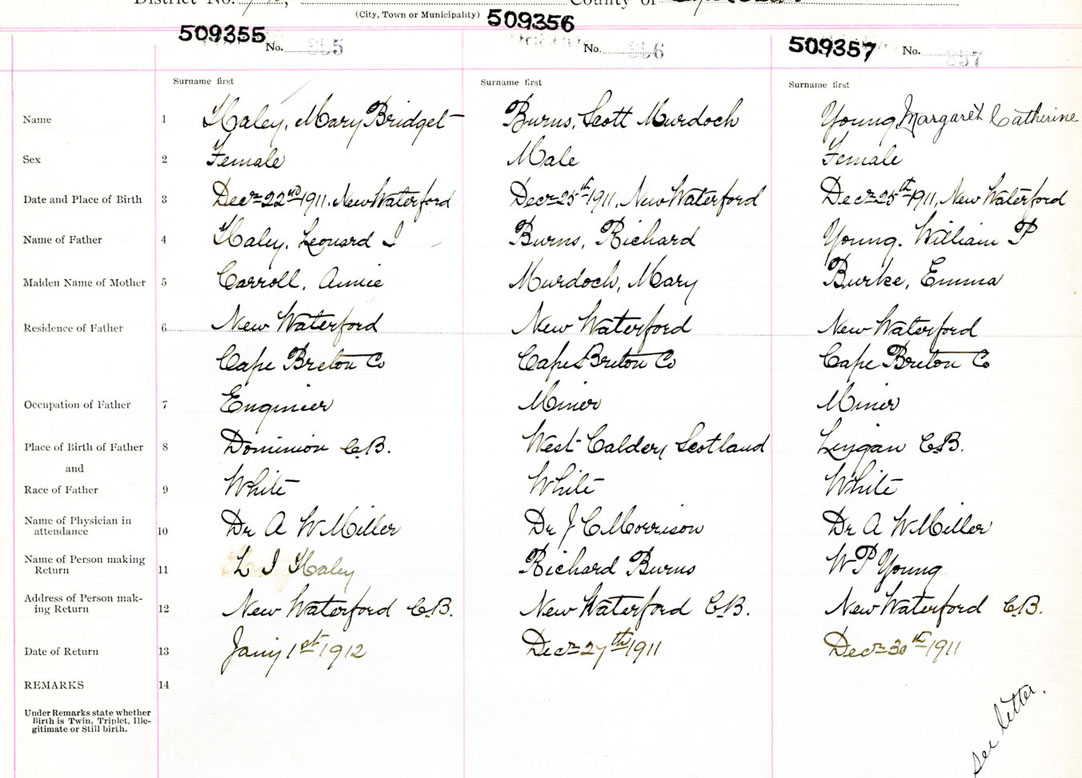 District No. County of
(City, Town or Municipality)
509355 No. 355 509356 No. 356 509357 No. 357
Surname first Surname first Surname first
Name 1 Haley, Mary Bridget Burns, Scott Murdoch Young, Margaret Catherine
Sex 2 Female Male Female
Date and Place of Birth 3 Dec 22nd 1911, New Waterford Dec 25th 1911, New Waterford Dec 25th 1911, New Waterford
Name of Father 4 Haley, Leonard J Burns, Richard Young. William P
Maiden Name of Mother 5 Carroll, Annie Murdoch, Mary Burke, Emma
Residence of Father 6 New Waterford New Waterford New Waterford
Cape Breton Co Cape Breton Co Cape Breton Co
Occupation of Father 7 Engineer Miner Miner
Place of Birth of Father 8 Dominion C.B. West Calder, Scotland Lingan C.B.
and
Race of Father 9 White White White
Name of Physician in
attendance 10 Dr A W Miller Dr J C Morrison Dr A W Miller
Name of Person making
Return 11 L J Haley Richard Burns W P Young
Address of Person mak-
ing Return 12 New Waterford C.B. New Waterford C.B. New Waterford C.B.
Date of Return 13 Jany 1st 1912 Dec 27th 1911 Dec 30th 1911
REMARKS 14
Under Remarks state whether
Birth is Twin, Triplet, Ille-
gitimate or Still birth.
see letter.